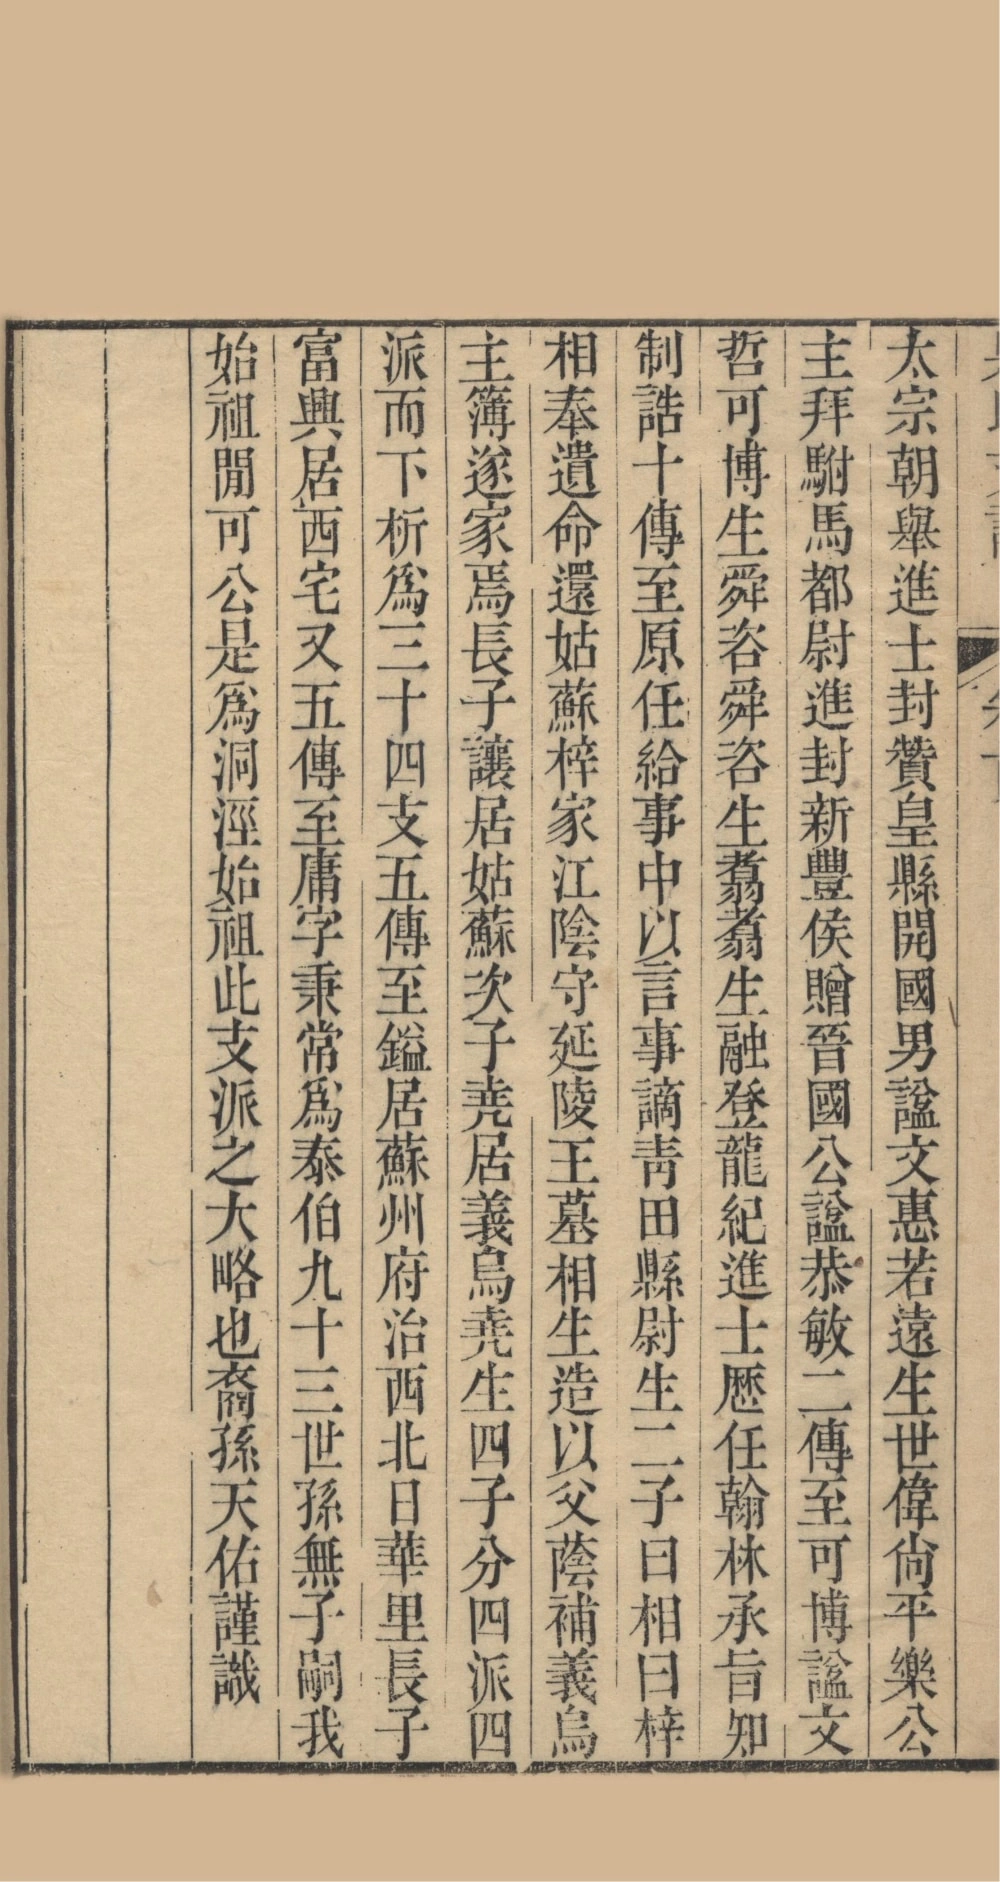 太宗朝舉進士封贊皇縣開國男諡文惠若遠生世偉尙平樂公
主拜駙馬都尉進封新豐侯贈晉國公諡恭敏二傳至可博諡文
哲可博生舜咨舜咨生翥翥生融登龍紀進士歷任翰林承旨知
制誥十傳至原任給事中以言事謫靑田縣尉生二子曰相曰梓
相奉遺命還姑蘇梓家江陰守延陵王墓相生造以父蔭補義烏
主簿遂家焉長子讓居姑蘇次子堯居義烏堯生四子分四派四
派而下析爲三十四支五傳至鎰居蘇州府治西北日華里長子
富興居西宅又五傳至庸字秉常爲泰伯九十三世孫無子嗣我
始祖閒可公是爲洞涇始祖此支派之大略也裔孫天佑謹識